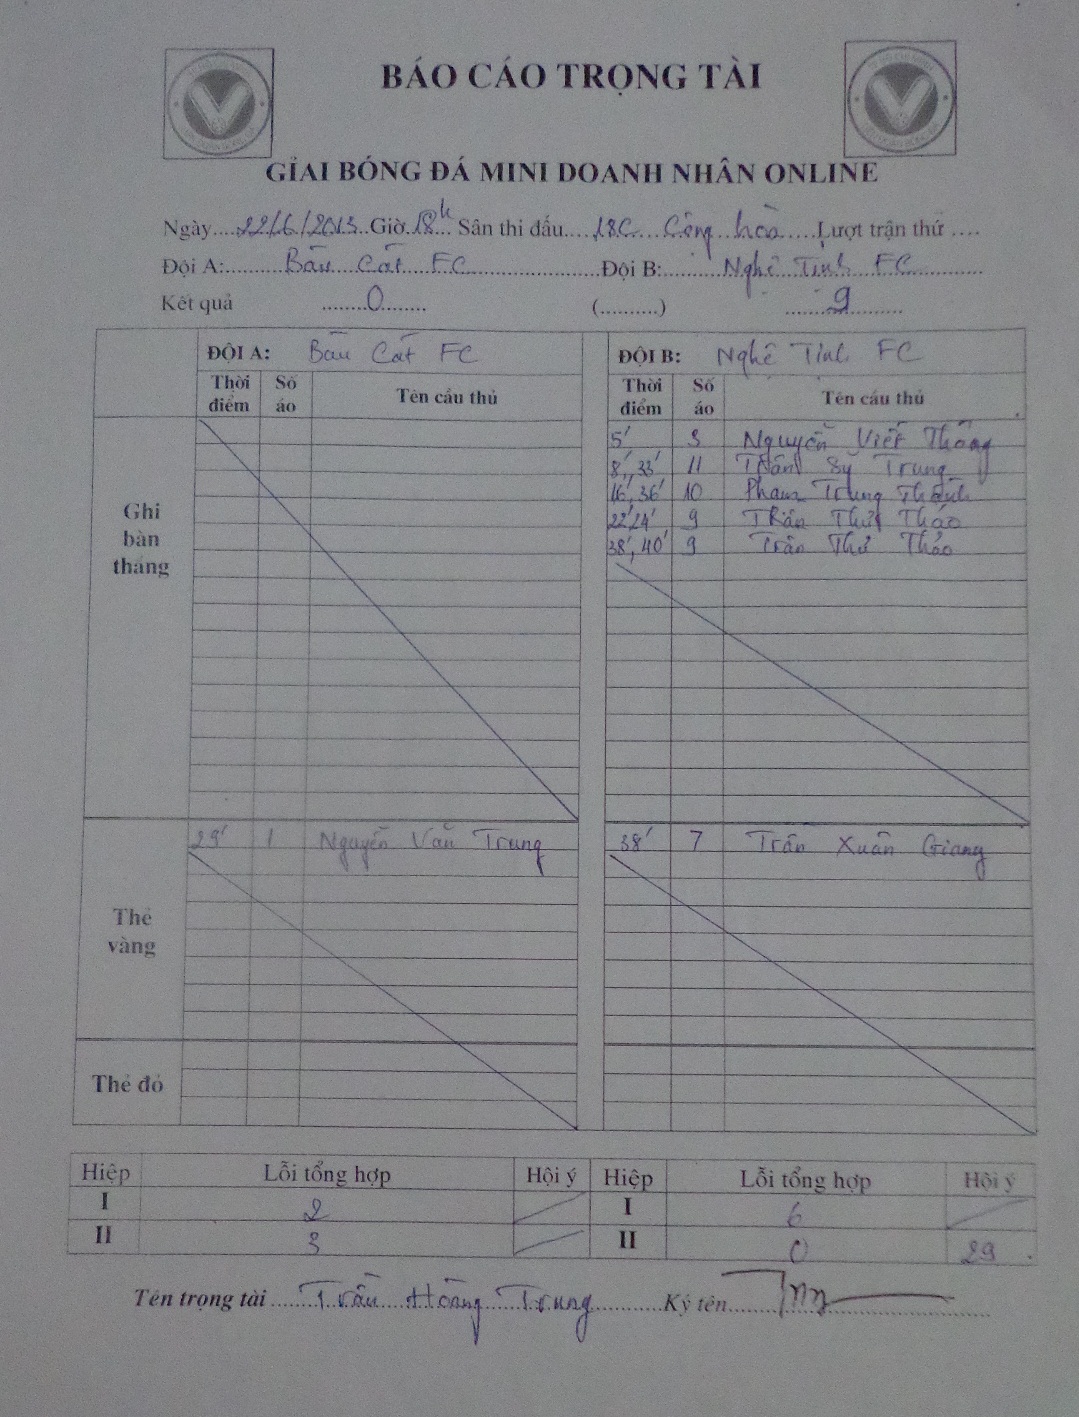 BÁO CÁO TRỌNG TÀI
GIẢI BÓNG ĐÁ MINI DOANH NHÂN ONLINE
Ngày....22/6/2013..Giờ.18h.. Sân thi đấu....18C...Cộng hòa.....Lượt trận thứ ....
Đội A:........Bàu Cát FC....................Đội B:........Nghệ Tĩnh FC..........
Kết quả ........0........ (..........) ........9..........
ĐỘI A: Bàu Cát FC ĐỘI B: Nghệ Tĩnh FC
Thời điểm Số áo Tên cầu thủ Thời điểm Số áo Tên cầu thủ
Ghi bàn thắng
5' 3 Nguyễn Viết Thắng
8', 33' 11 Trần Sỹ Trung
16', 36' 10 Phạm Trung Thành
22' 24' 9 Trần Thư Thảo
38', 40' 9 Trần Thư Thảo
Thẻ vàng
29' 1 Nguyễn Văn Trung 38' 7 Trần Xuân Giang
Thẻ đỏ
Hiệp Lỗi tổng hợp Hội ý Hiệp Lỗi tổng hợp Hội ý
I 2 I 6
II 3 II 0 29
Tên trọng tài ....Trần Hoàng Trung..........Ký tên